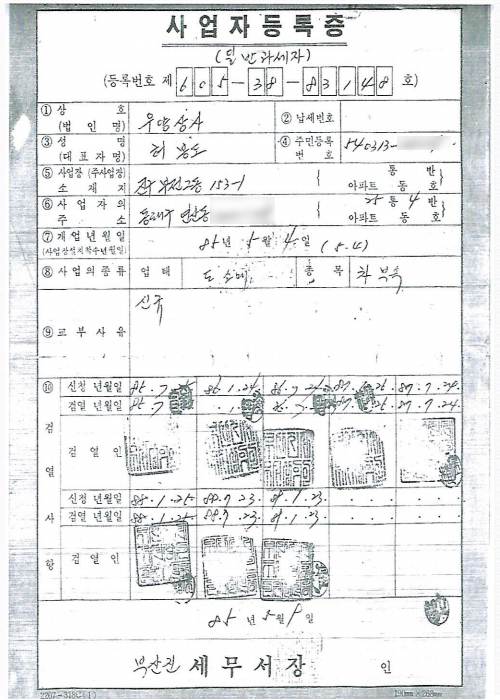 사업자등록증
(일반과세자)
(등록번호 제 605-38-83148 호)
① 상 호 (법인명) 우양상사 ② 납세번호
③ 성 명 (대표자명) 허 ④ 주민등록번호 540313-
⑤ 사업장 (주사업장) 소재지 진구 부전2동 153-1 ( 통 반 아파트 동 호 )
⑥ 사업자의 주소 동래구 연산동 ( 25 통 4 반 아파트 동 호 )
⑦ 개업년월일 (사업장설치착수년월일) 85년 5월 4일 (5.4)
⑧ 사업의종류 업태 도소매 종목 차 부속
⑨ 교부사유 신규
⑩ 검열사항
신청년월일 85.7.25 86.1.25. 86.7.26 87. .25. 87.7.24.
검열년월일 85.7 .1. 86.7. 87. .25 87.7.24
검열인
신청년월일 88.1.25 88.7.23. 89.1.23. . . . . . .
검열년월일 88.1.25 88.7.23. 89.1.23. . . . . . .
검열인
85년 5월 9일
부산진 세무서장 인
2207-318C(1) 190mm×268mm